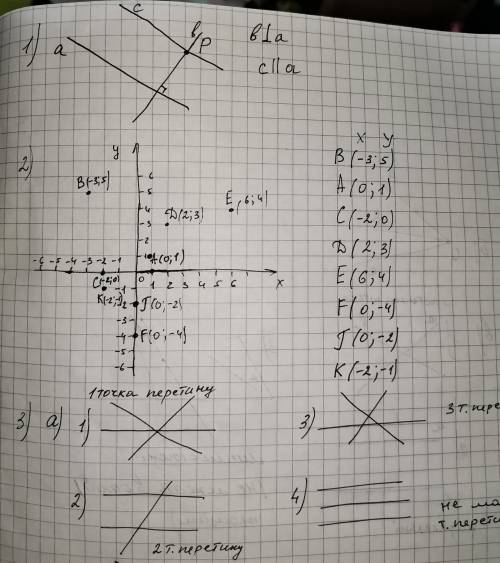 1) a c b P b⊥a
c||a
2) y x y
B(-3;5)
A(0;1)
C(-2;0)
D(2;3)
E(6;4)
F(0;-4)
T(0;-2)
K(-2;-1)
6
B(-3;5) 5
4 E(6;4)
3 D(2;3)
2
1 A(0;1)
-6 -5 -4 -3 -2 -1 0 1 2 3 4 5 6 x
C(-2;0)
K(-2;-1) -1
-2 T(0;-2)
-3
-4 F(0;-4)
-5
-6
1 точка перетину
3) a) 1)
3) 3 т. пере
2) 2 т. перетину
4) не ма
т. перети